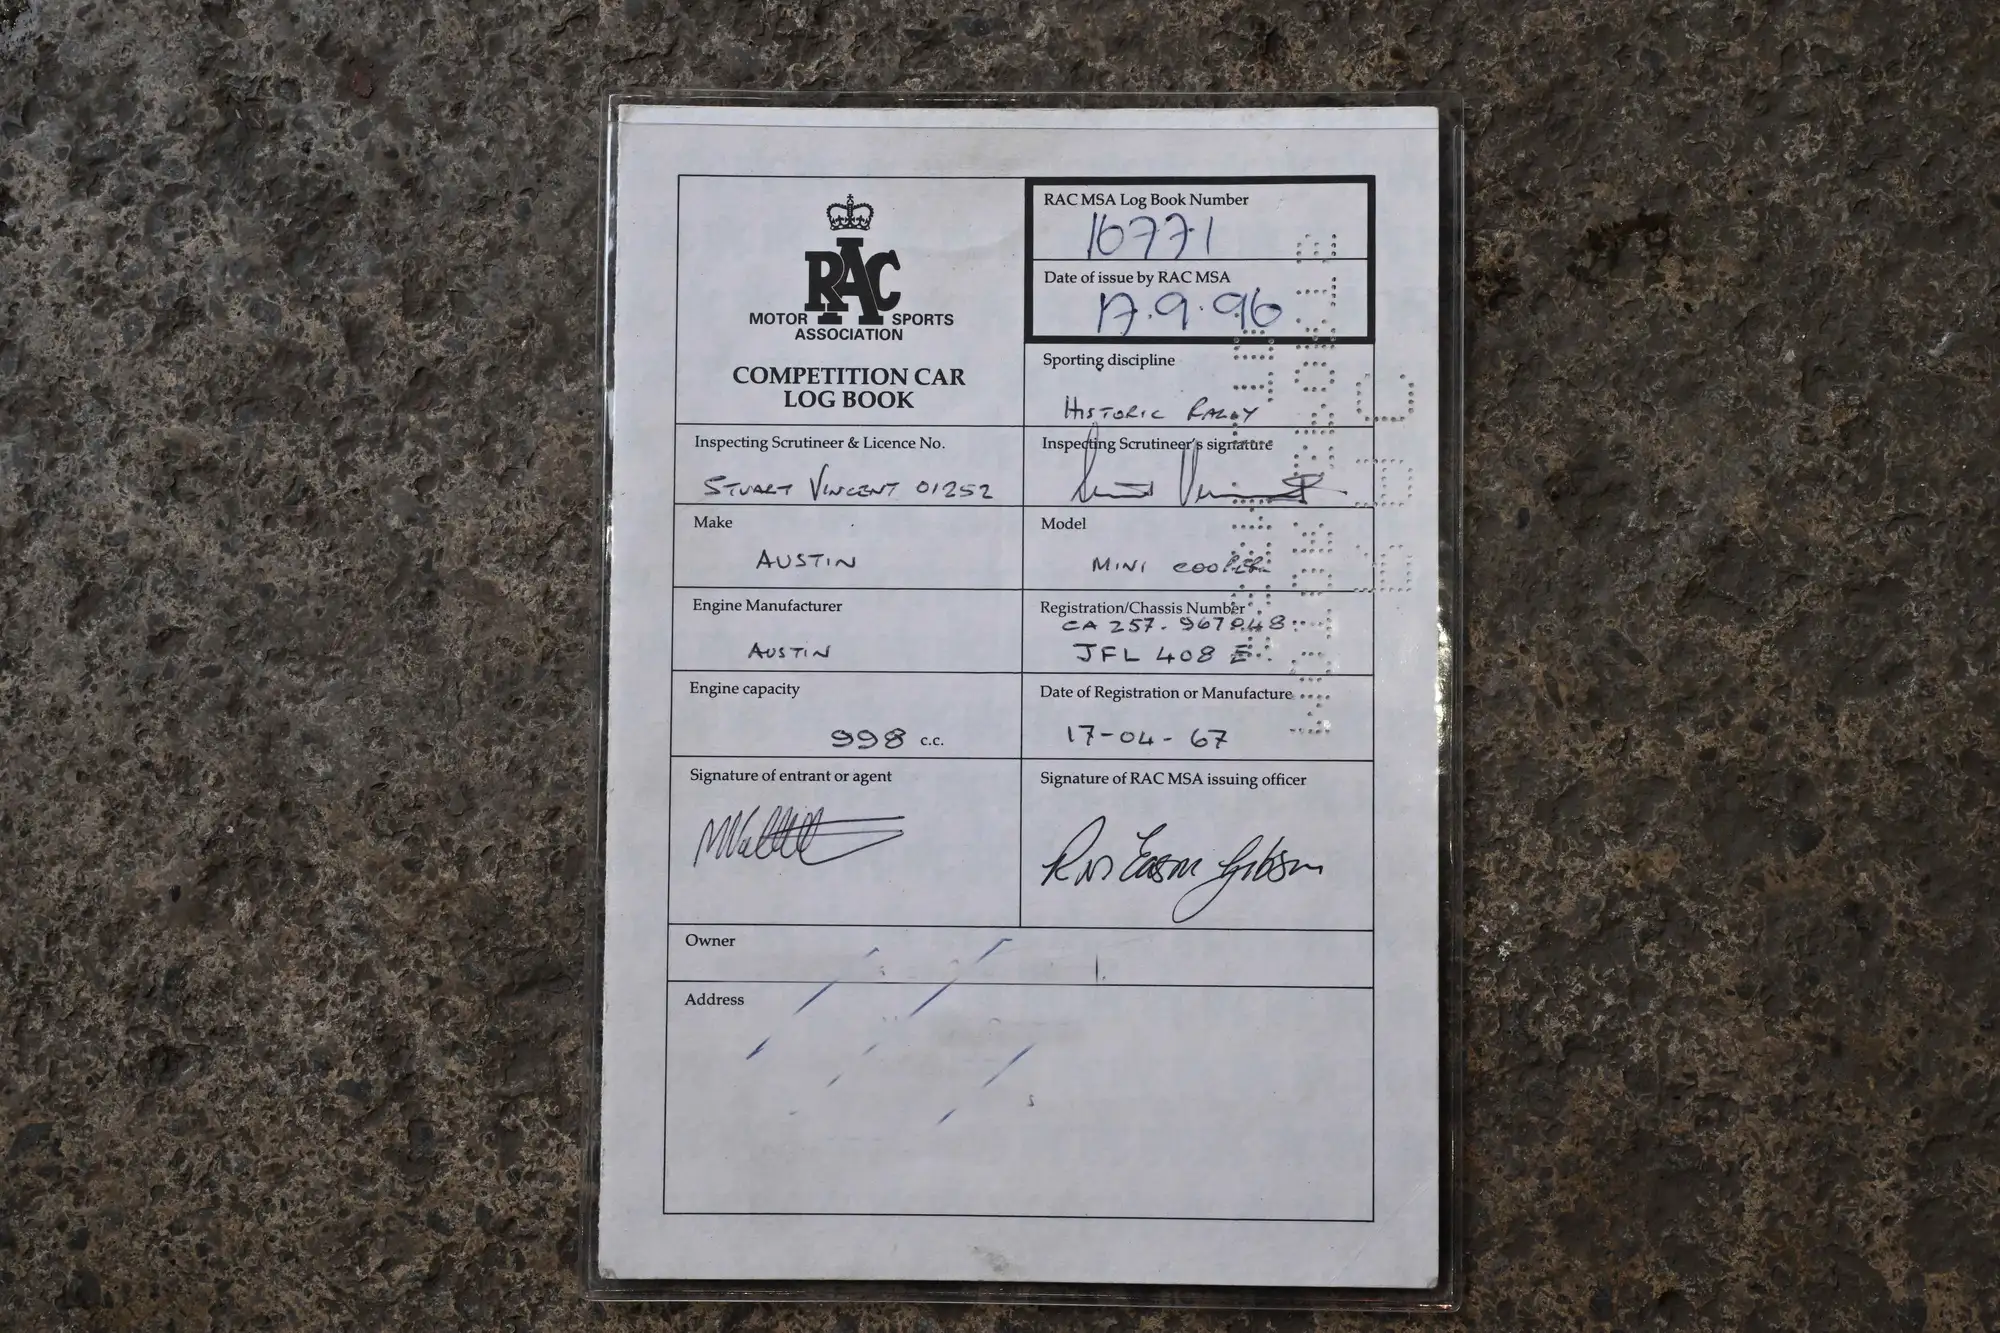 RAC
MOTOR SPORTS
ASSOCIATION
COMPETITION CAR
LOG BOOK
RAC MSA Log Book Number
16771
Date of issue by RAC MSA
17.9.96
Sporting discipline
HISTORIC RALLY
Inspecting Scrutineer & Licence No.
STUART VINCENT 01252
Inspecting Scrutineer's signature
Make
AUSTIN
Model
MINI COOPER
Engine Manufacturer
AUSTIN
Registration/Chassis Number
CA 257. 967048
JFL 408 E
Engine capacity
998 c.c.
Date of Registration or Manufacture
17-04-67
Signature of entrant or agent
Signature of RAC MSA issuing officer
Owner
Address